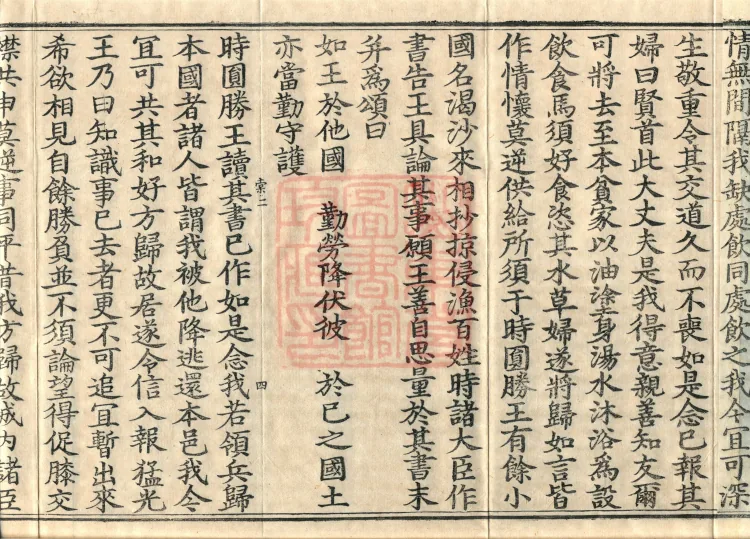 情無間隔我缺處飲同處飲之我今宜可深
生敬重令其交道久而不喪如是念已報其
婦曰賢首此大丈夫是我得意親善知友爾
可將去至本貧家以油塗身湯水沐浴為設
飲食馬須好食恣其水草婦遂將歸如言皆
作情懷莫逆供給所須于時圓勝王有餘小
國名渴沙來相抄掠侵漁百姓時諸大臣作
書告王具論其事願王善自思量於其書末
并為頌曰
如王於他國　勤勞降伏彼　於已之國土
亦當勤守護
索二　四
時圓勝王讀其書已作如是念我若領兵歸
本國者諸人皆謂我被他降逃還本邑我今
宜可共其和好方歸故居遂令信入報猛光
王乃曰知識事已去者更不可追宜暫出來
希欲相見自餘勝負並不須論望得促膝交
襟共申莫逆事同平昔我方歸故城內諸臣